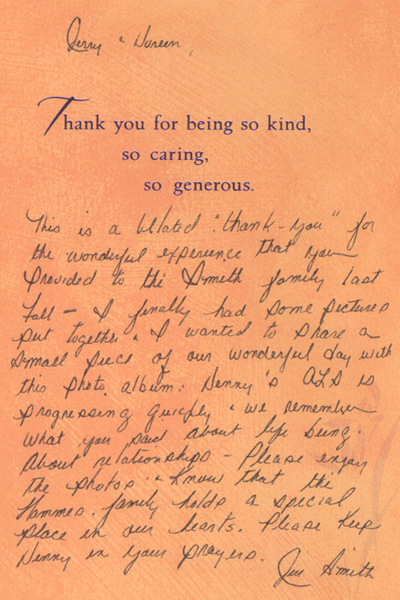 Jerry & Noreen,
Thank you for being so kind,
so caring,
so generous.
This is a belated "thank-you" for
the wonderful experience that you
provided to the Smith family last
Fall - I finally had some pictures
put together & I wanted to share a
small piece of our wonderful day with
this photo album. Denny's ALS is
progressing quickly & we remember
what you said about life being
about relationships - Please enjoy
the photos & know that the
Hammes family holds a special
place in our hearts. Please keep
Denny in your prayers.
Jim Smith